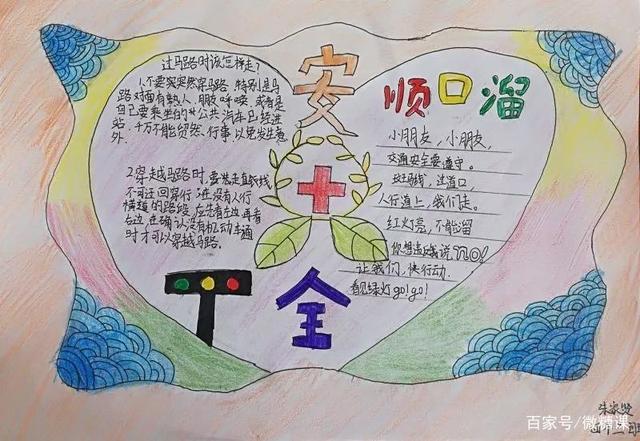 安
全
顺口溜
过马路时该怎样走?
1不要突然穿马路,特别是马
路对面有熟人、朋友呼唤,或者是
自己要乘坐的公共汽车已经进
站,千万不能贸然行事,以免发生意
外.
2.穿越马路时,要走直线
不可迂回穿行;在没有人行
横道的路段,应先看左边,再看
右边,在确认没有机动车通
时才可以穿越马路.
小朋友,小朋友,
交通安全要遵守。
斑马线,过道口,
人行道上,我们走。
红灯亮,不能溜
你想走我说NO!
让我们,快行动.
看见绿灯go!go!
百家号/微糖课